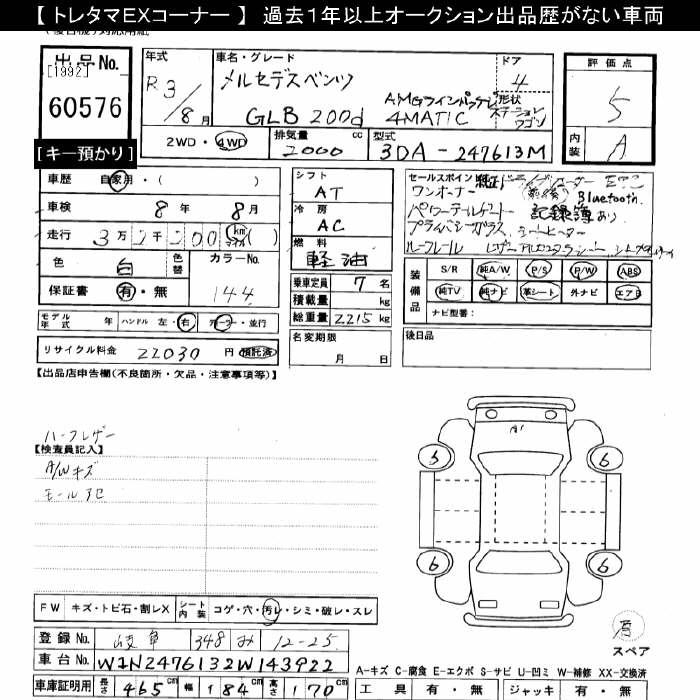 【 トレタマEXコーナー 】 過去1年以上オークション出品歴がない車両
出品No.
[1992]
60576
[キー預かり]
年式
R3/8月
車名・グレード
メルセデスベンツ
GLB 200d
AMGラインパッケージ
4MATIC
ドア
4
形状
ステーションワゴン
2WD・4WD
排気量
2000 cc
型式
3DA-247613M
評価点
5
内装
A
車歴 自家用・( )
車検 8年 8月
走行 3万 千 00 km マイル ( )
色 白 色替 カラーNo.
保証書 有・無 144
モデル年式 年 ハンドル 左・右 ディーラー・並行
リサイクル料金 22030 円 預託済
シフト
AT
冷房
AC
燃料
軽油
乗車定員 7 名
積載量 kg
総重量 2215 kg
名変期限
月 日
セールスポイント 純正
ワンオーナー Bluetooth.
パワーテールゲート 記録簿あり
プライバシーガラス シートヒーター
ルーフレール
装備品
S/R 純A/W P/S P/W ABS
純TV 純ナビ 革シート 外ナビ エアB
ナビ型番:
後日品
【出品店申告欄(不良箇所・欠品・注意事項等)】
ハーフレザー
【検査員記入】
A/Wキズ
モール
A1
6
6
6
6
スペア
FW キズ・トビ石・割レX シート内装 コゲ・穴・汚レ・シミ・破レ・スレ
登録No. 岐阜 348 み 12-25
車台No. W1N2476132W143922
車庫証明用 長さ 465 cm 幅 184 cm 高さ 170 cm
A-キズ C-腐食 E-エクボ S-サビ U-凹ミ W-補修 XX-交換済
工具 有・無 ジャッキ 有・無